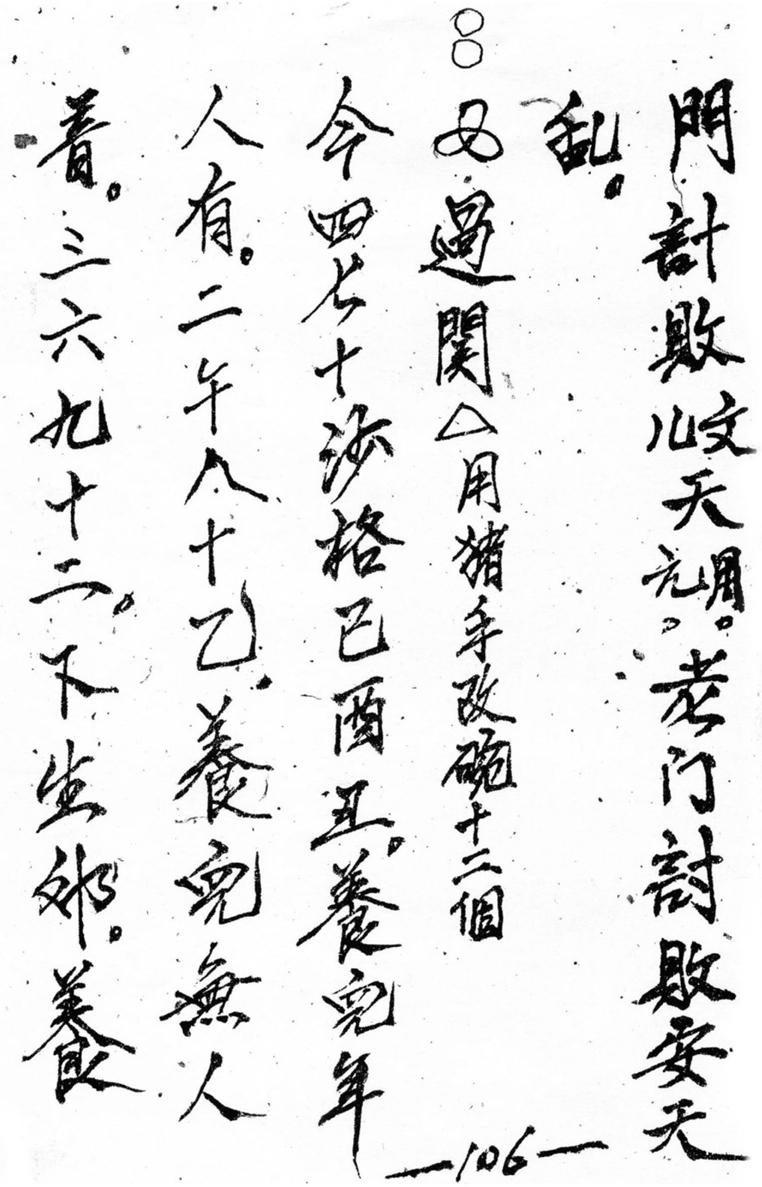 門計敗收天月元。老门討敗安天
乱。
又過関△用猪手改碗十二個
今四七十沙格已酉丑。養児年
人有。二午八十乙。養児無人
着。三六九十二。下生邜。養
—106—